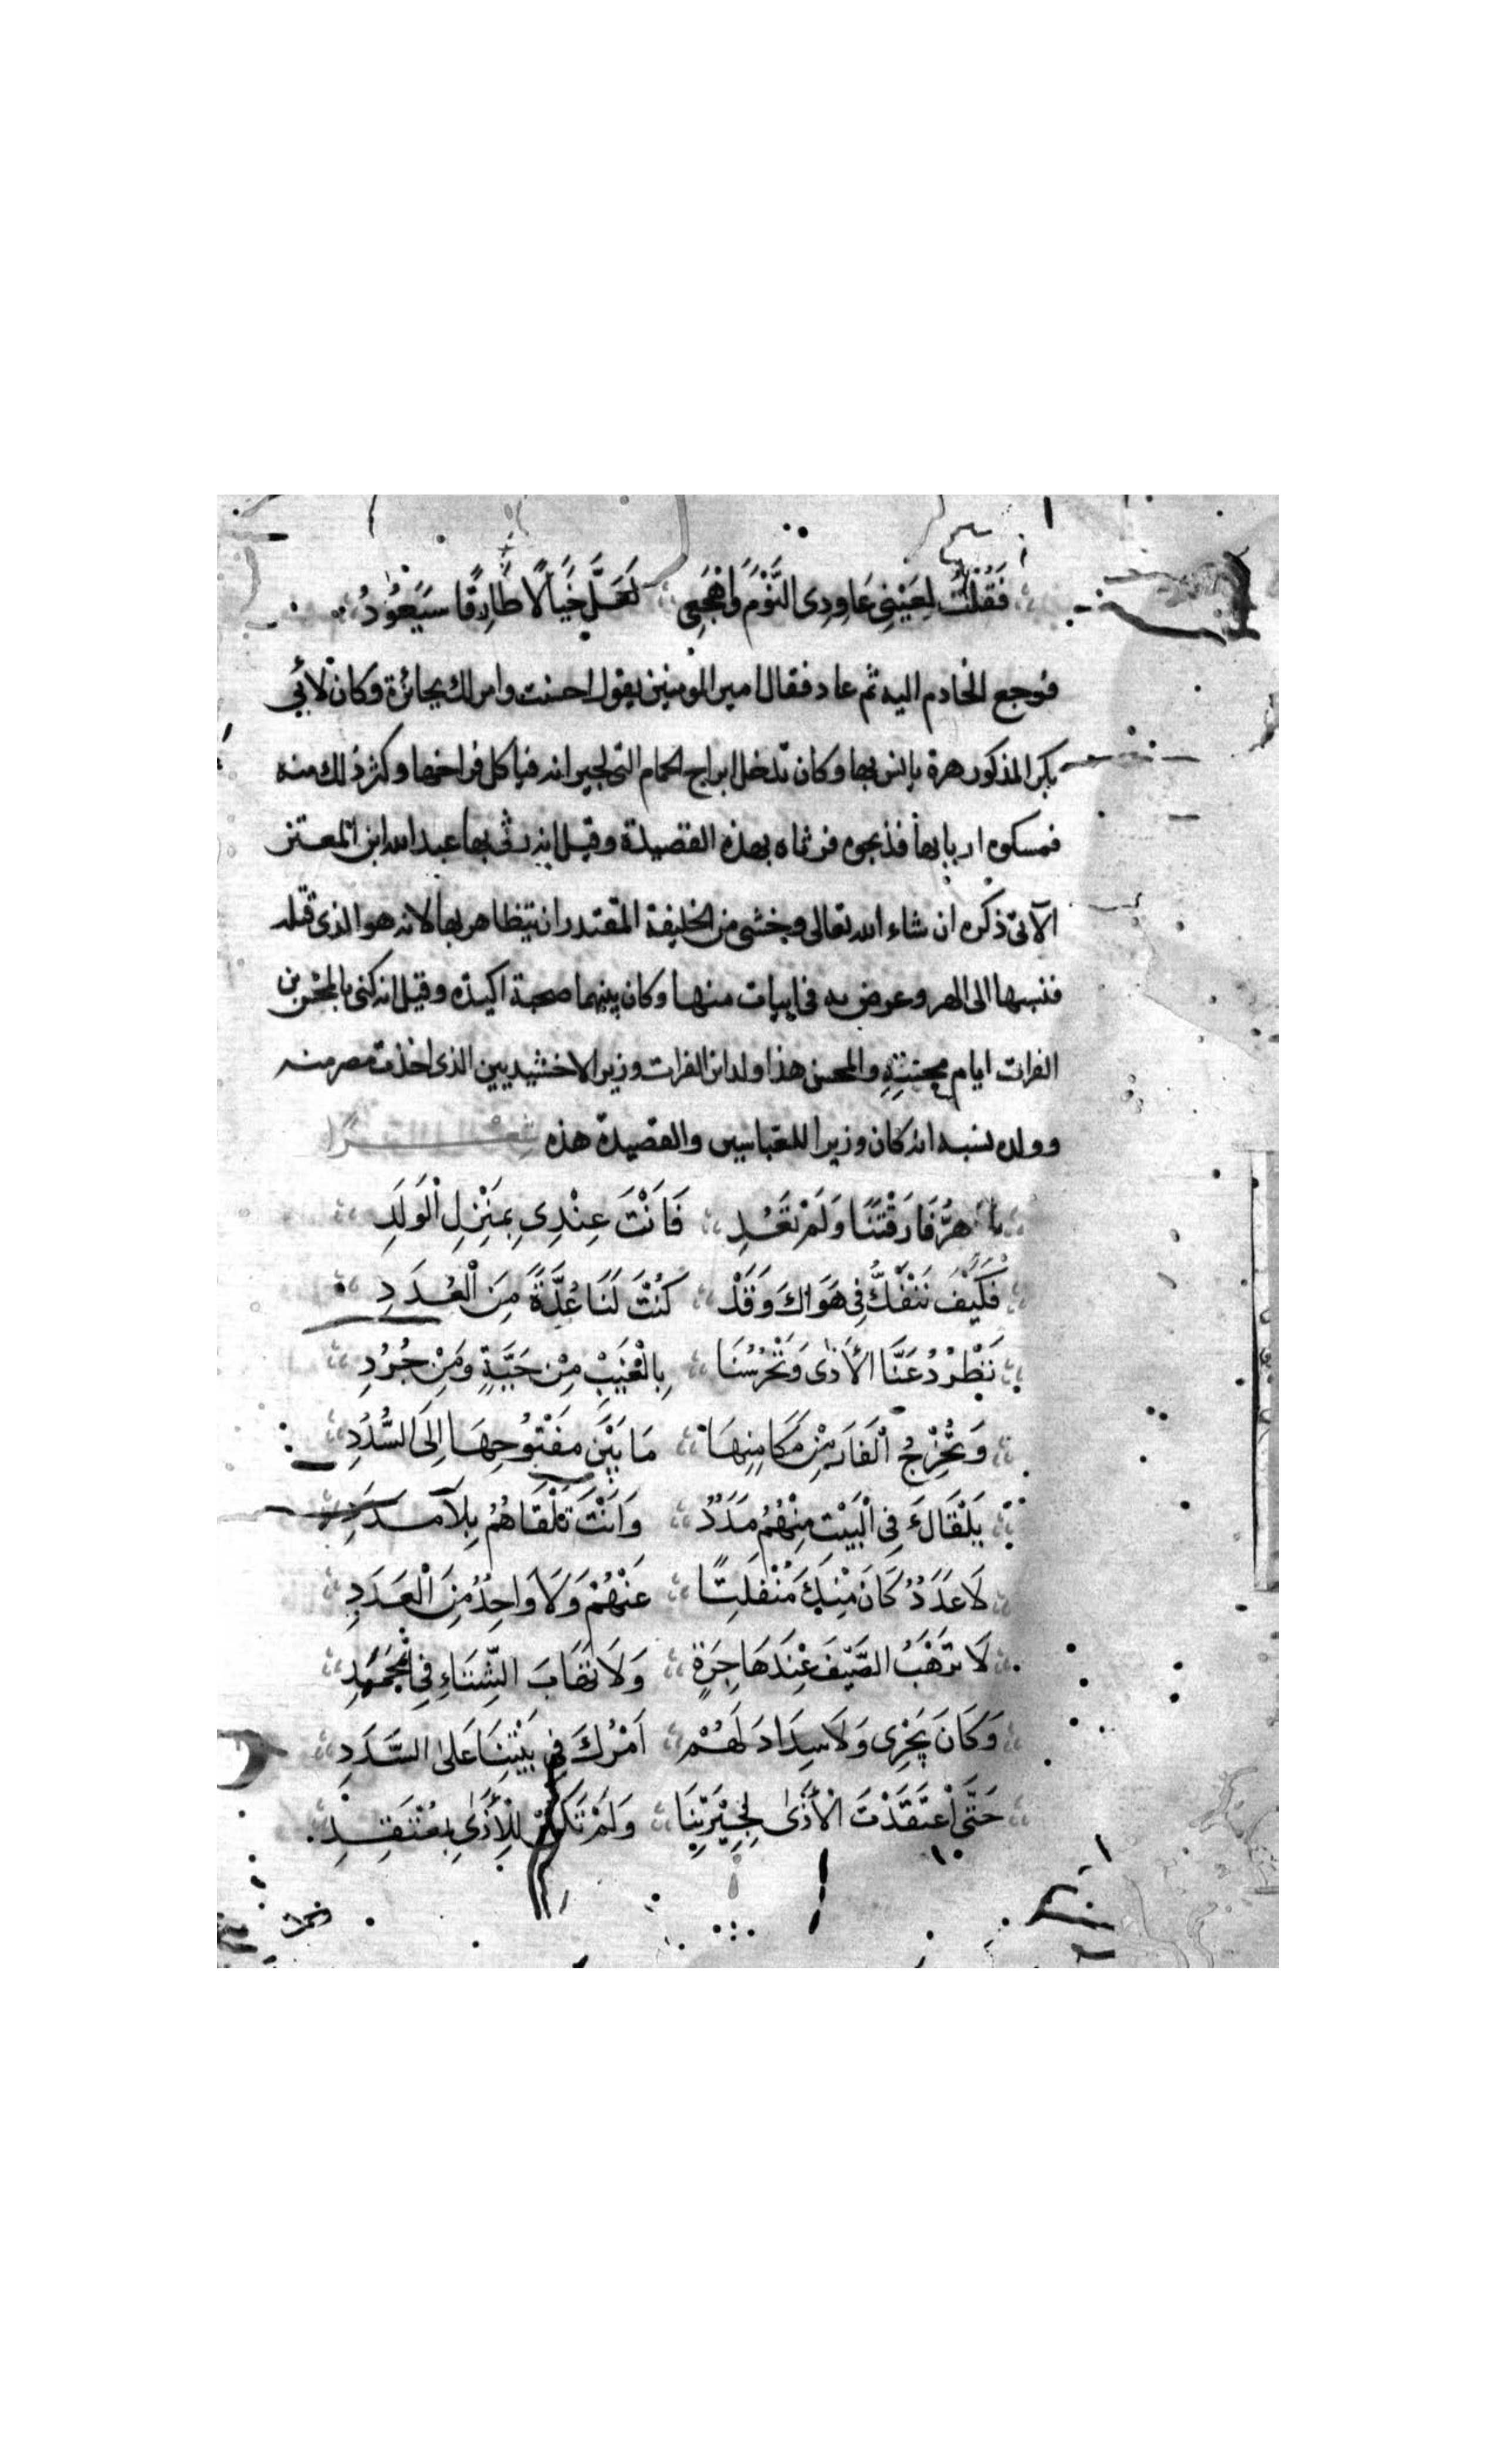 فَقُلْتُ لِعَيْنِي عَاوِدِى النَّوْمَ وَاهْجَعِي لَعَلَّ خَيَالًا طَارِقًا سَيَعُوْدُ
فرجع الخادم اليه ثم عاد فقال امير المومنين يقول احسنت وامر لك بجائزة وكان لأبي
بكر المذكور هرة يانس بها وكان تدخل ابراج الحمام التى لجيرانه فياكل فراخها وكثر ذلك منه
فمسكوه اربابها فذبحوه فرثاه بهذه القصيدة وقيل انه رثى بها عبد الله ابن المعتز
الآتى ذكره ان شاء الله تعالى وخشى من الخليفة المقتدر ان يتظاهر بها لانه هو الذى قتله
فنسبها الى الهر وعرض به في ابيات منها وكان بينهما صحبة اكيدة وقيل انه كنى بالمحسن بن
الفرات ايام محنته والمحسن هذا ولد ابن الفرات وزير الاخشيديين الذى اخذت مصر منه
وولده نسبه انه كان وزيرا للعباسيين والقصيدة هذه شِعْرًا
يا هِرُّ فَارَقْتَنَا وَلَمْ تَعُدِ فَانْتَ عِنْدِى بِمَنْزِلِ الْوَلَدِ
فَكَيْفَ نَنْفَكُّ فِى هَوَاكَ وَقَدْ كُنْتَ لَنَا عُدَّةً مِنَ الْعُدَدِ
تَطْرُدُ عَنَّا الأَذٰى وَتَحْرُسُنَا بِالْغَيْبِ مِنْ حَيَّةٍ وَمِنْ جُرُدِ
وَتُخْرِجُ الْفَارَ مِنْ مَكَامِنِهَا مَا بَيْنَ مَفْتُوحِهَا اِلَى السُّدُدِ
يَلْقَاكَ فِى الْبَيْتِ مِنْهُمُ مَدَدٌ وَانْتَ تَلْقَاهُمُ بِلَا مَدَدِ
لَا عَدَدٌ كَانَ مِنْكَ مُنْفَلِتًا عَنْهُمْ وَلَا وَاحِدٌ مِنَ الْعَدَدِ
لَا تَرْهَبُ الصَّيْفَ عِنْدَ هَاجِرَةٍ وَلَا تَهَابَ الشِّتَاءِ فِى الْجَمَدِ
وَكَانَ يَجْرِى وَلَا سِدَادَ لَهُمْ اَمْرُكَ فِى بَيْتِنَا عَلَى السَّدَدِ
حَتَّى اعْتَقَدْتَ الْأَذَى لِجِيْرَتِنَا وَلَمْ تَكُنْ لِلْأَذَى بِمُعْتَقِدِ